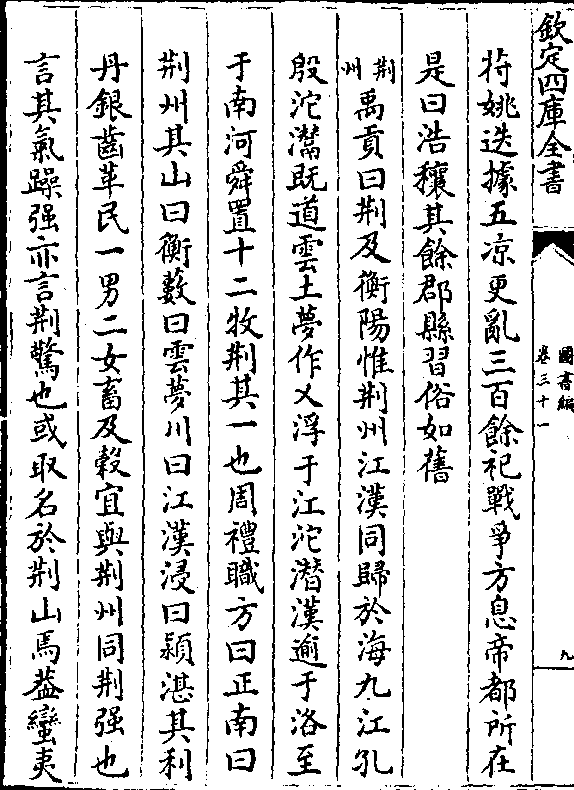 欽定四庫全書
圖書編
卷三十一
九
苻姚迭據五凉更亂三百餘祀戰爭方息帝都所在
是曰浩穰其餘郡縣習俗如舊
荆州
禹貢曰荆及衡陽惟荆州江漢同歸於海九江孔
殷沱灊既道雲土夢作乂浮于江沱潛漢逾于洛至
于南河舜置十二牧荆其一也周禮職方曰正南曰
荆州其山曰衡藪曰雲夢川曰江漢浸曰潁湛其利
丹銀齒革民一男二女畜及穀宜與荆州同荆强也
言其氣躁强亦言荆驚也或取名於荆山焉葢蠻夷